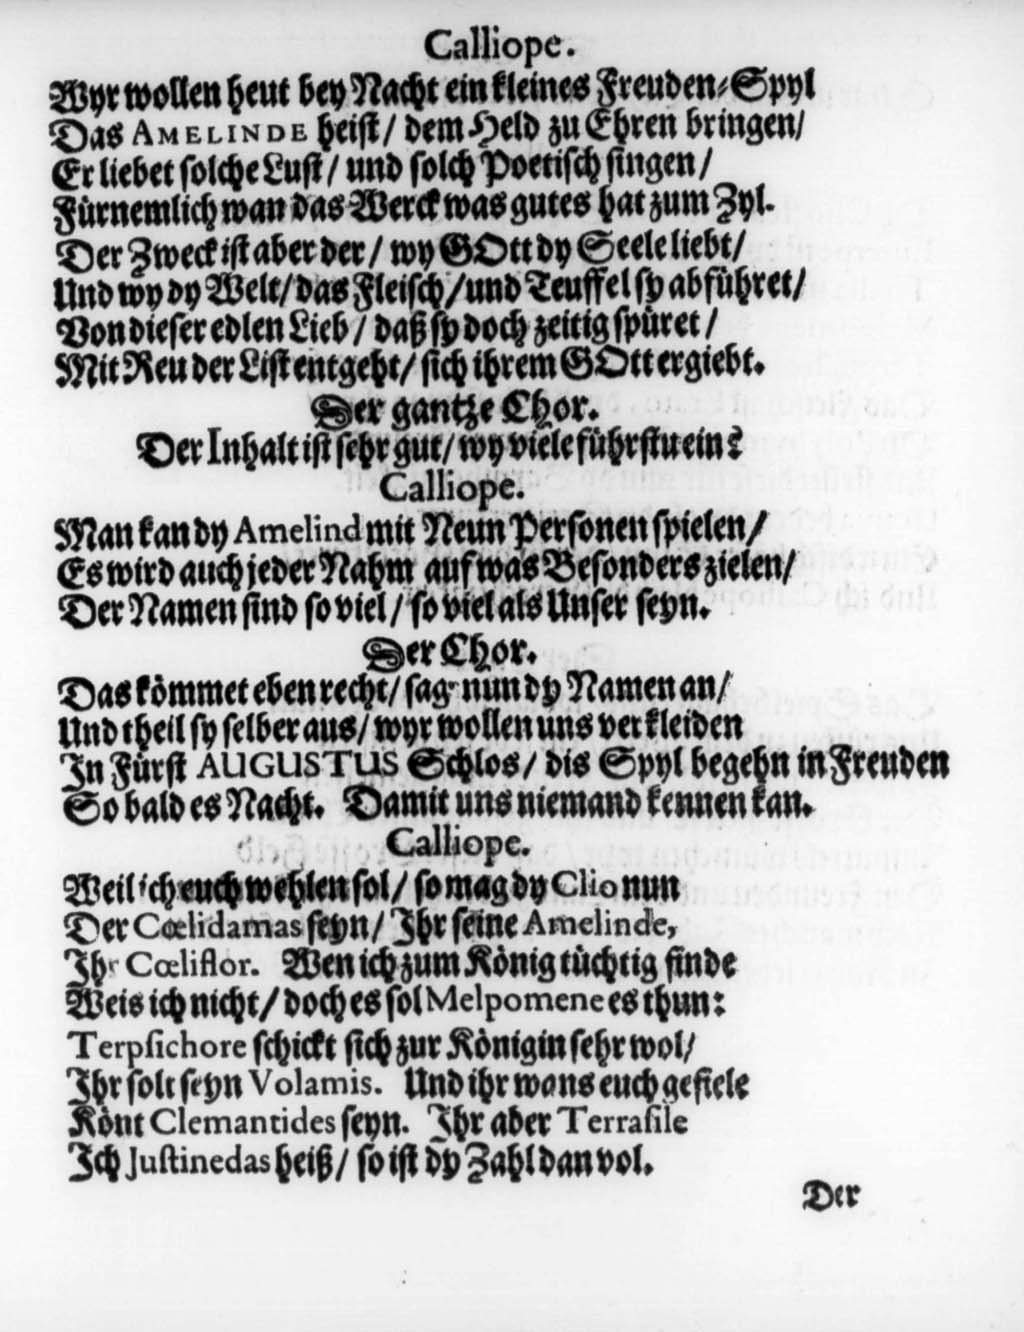 Calliope.
Wyr wollen heut bey Nacht ein kleines Freuden-Spyl
Das AMELINDE heist/ dem Held zu Ehren bringen/
Er liebet solche Lust/ und solch Poetisch singen/
Fürnemlich wan das Werck was gutes hat zum Zyl.
Der Zweck ist aber der/ wy GOtt dy Seele liebt/
Und wy dy Welt/ das Fleisch/ und Teuffel sy abführet/
Von dieser edlen Lieb/ daß sy doch zeitig spüret/
Mit Reu der List entgeht/ sich ihrem GOtt ergiebt.
Der gantze Chor.
Der Inhalt ist sehr gut/ wy viele führstu ein?
Calliope.
Man kan dy Amelind mit Neun Personen spielen/
Es wird auch jeder Nahm auf was Besonders zielen/
Der Namen sind so viel/ so viel als Unser seyn.
Der Chor.
Das kömmet eben recht/ sag nun dy Namen an/
Und theil sy selber aus/ wyr wollen uns verkleiden
In Fürst AUGUSTUS Schlos/ dis Spyl begehn in Freuden
So bald es Nacht. Damit uns niemand kennen kan.
Calliope.
Weil ich euch wehlen sol/ so mag dy Clio nun
Der Cœlidamas seyn/ Ihr seine Amelinde,
Ihr Cœliflor. Wen ich zum König tüchtig finde
Weis ich nicht/ doch es sol Melpomene es thun:
Terpsichore schickt sich zur Königin sehr wol/
Ihr solt seyn Volamis. Und ihr wans euch gefiele
Könt Clemantides seyn. Ihr aber Terrasile
Ich Justinedas heiß/ so ist dy Zahl dan vol.
Der